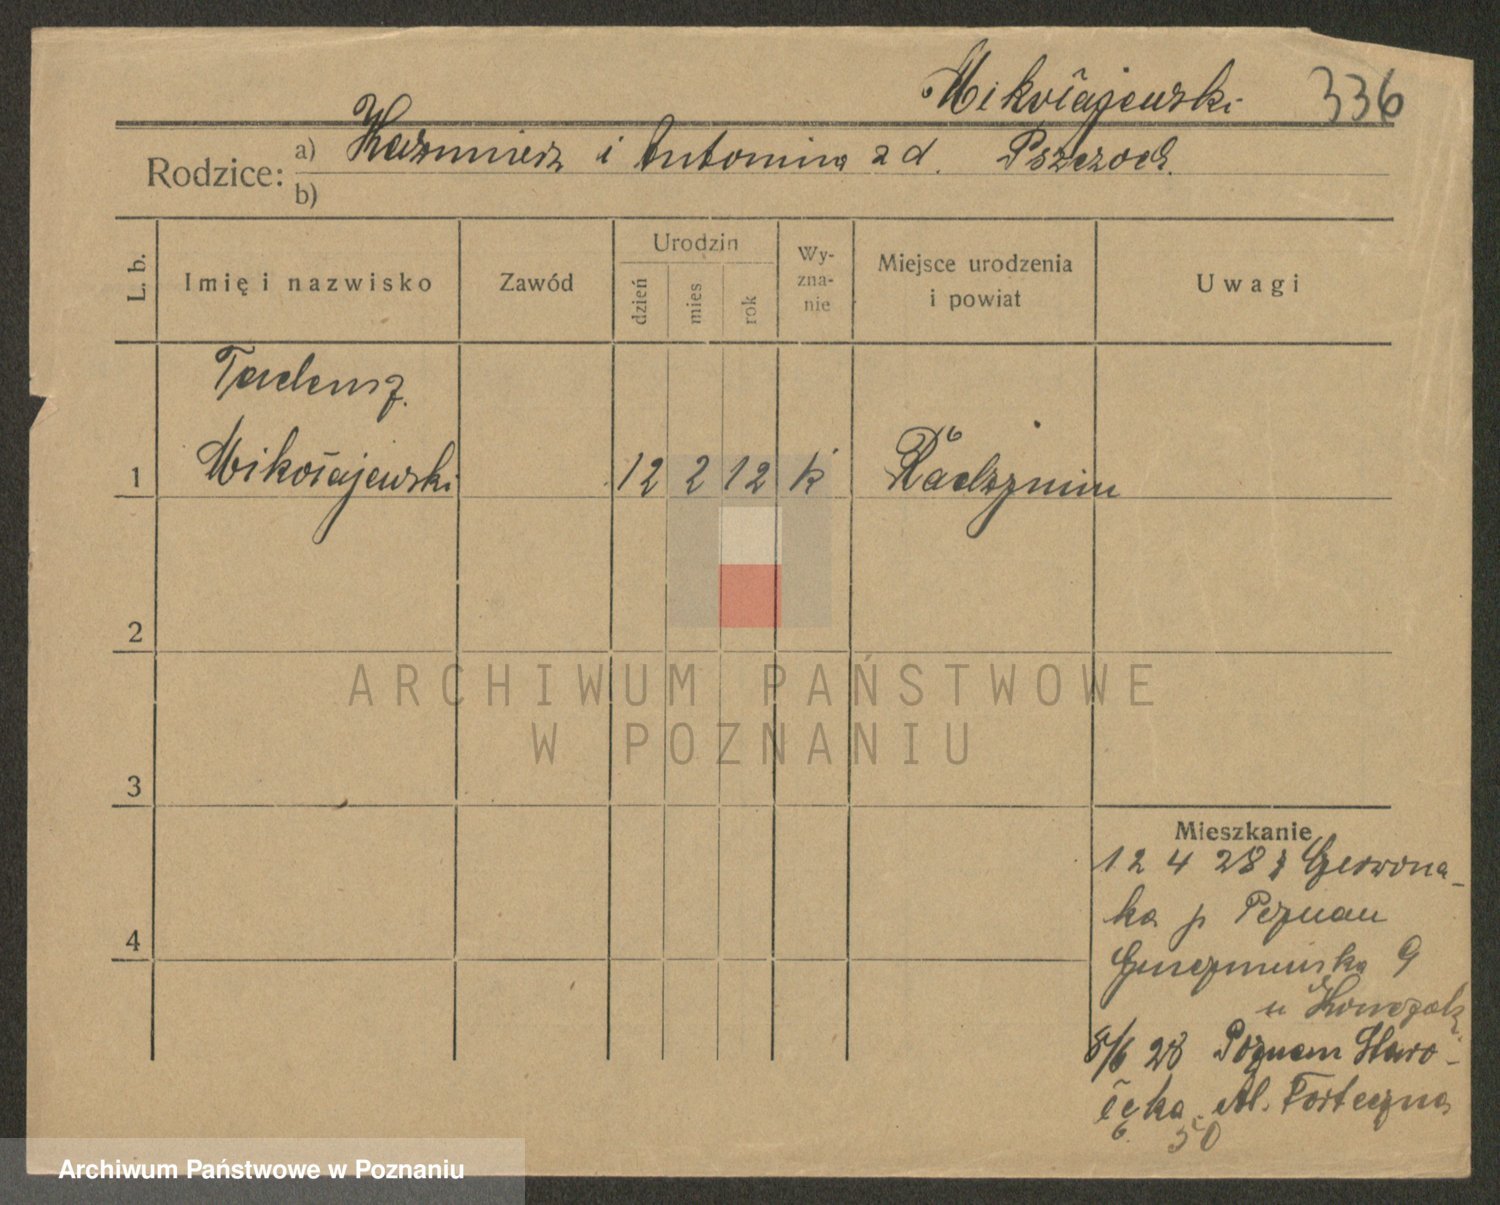 Mikołajewski 336
Rodzice: a) Kazimierz i Antonina z d. Pszczoła
b)
L. b. Imię i nazwisko Zawód Urodzin dzień mies rok Wy-zna-nie Miejsce urodzenia i powiat Uwagi
Tadeusz
1 Mikołajewski 12 2 12 k Radzymin
2
ARCHIWUM PAŃSTWOWE
W POZNANIU
3
Mieszkanie
12 4 28 z Czerwona-
ka p Poznań
4
Gnieźnieńska 9
u
8/6 28 Poznań Staro-
łęka Al. Forteczna
50
Archiwum Państwowe w Poznaniu